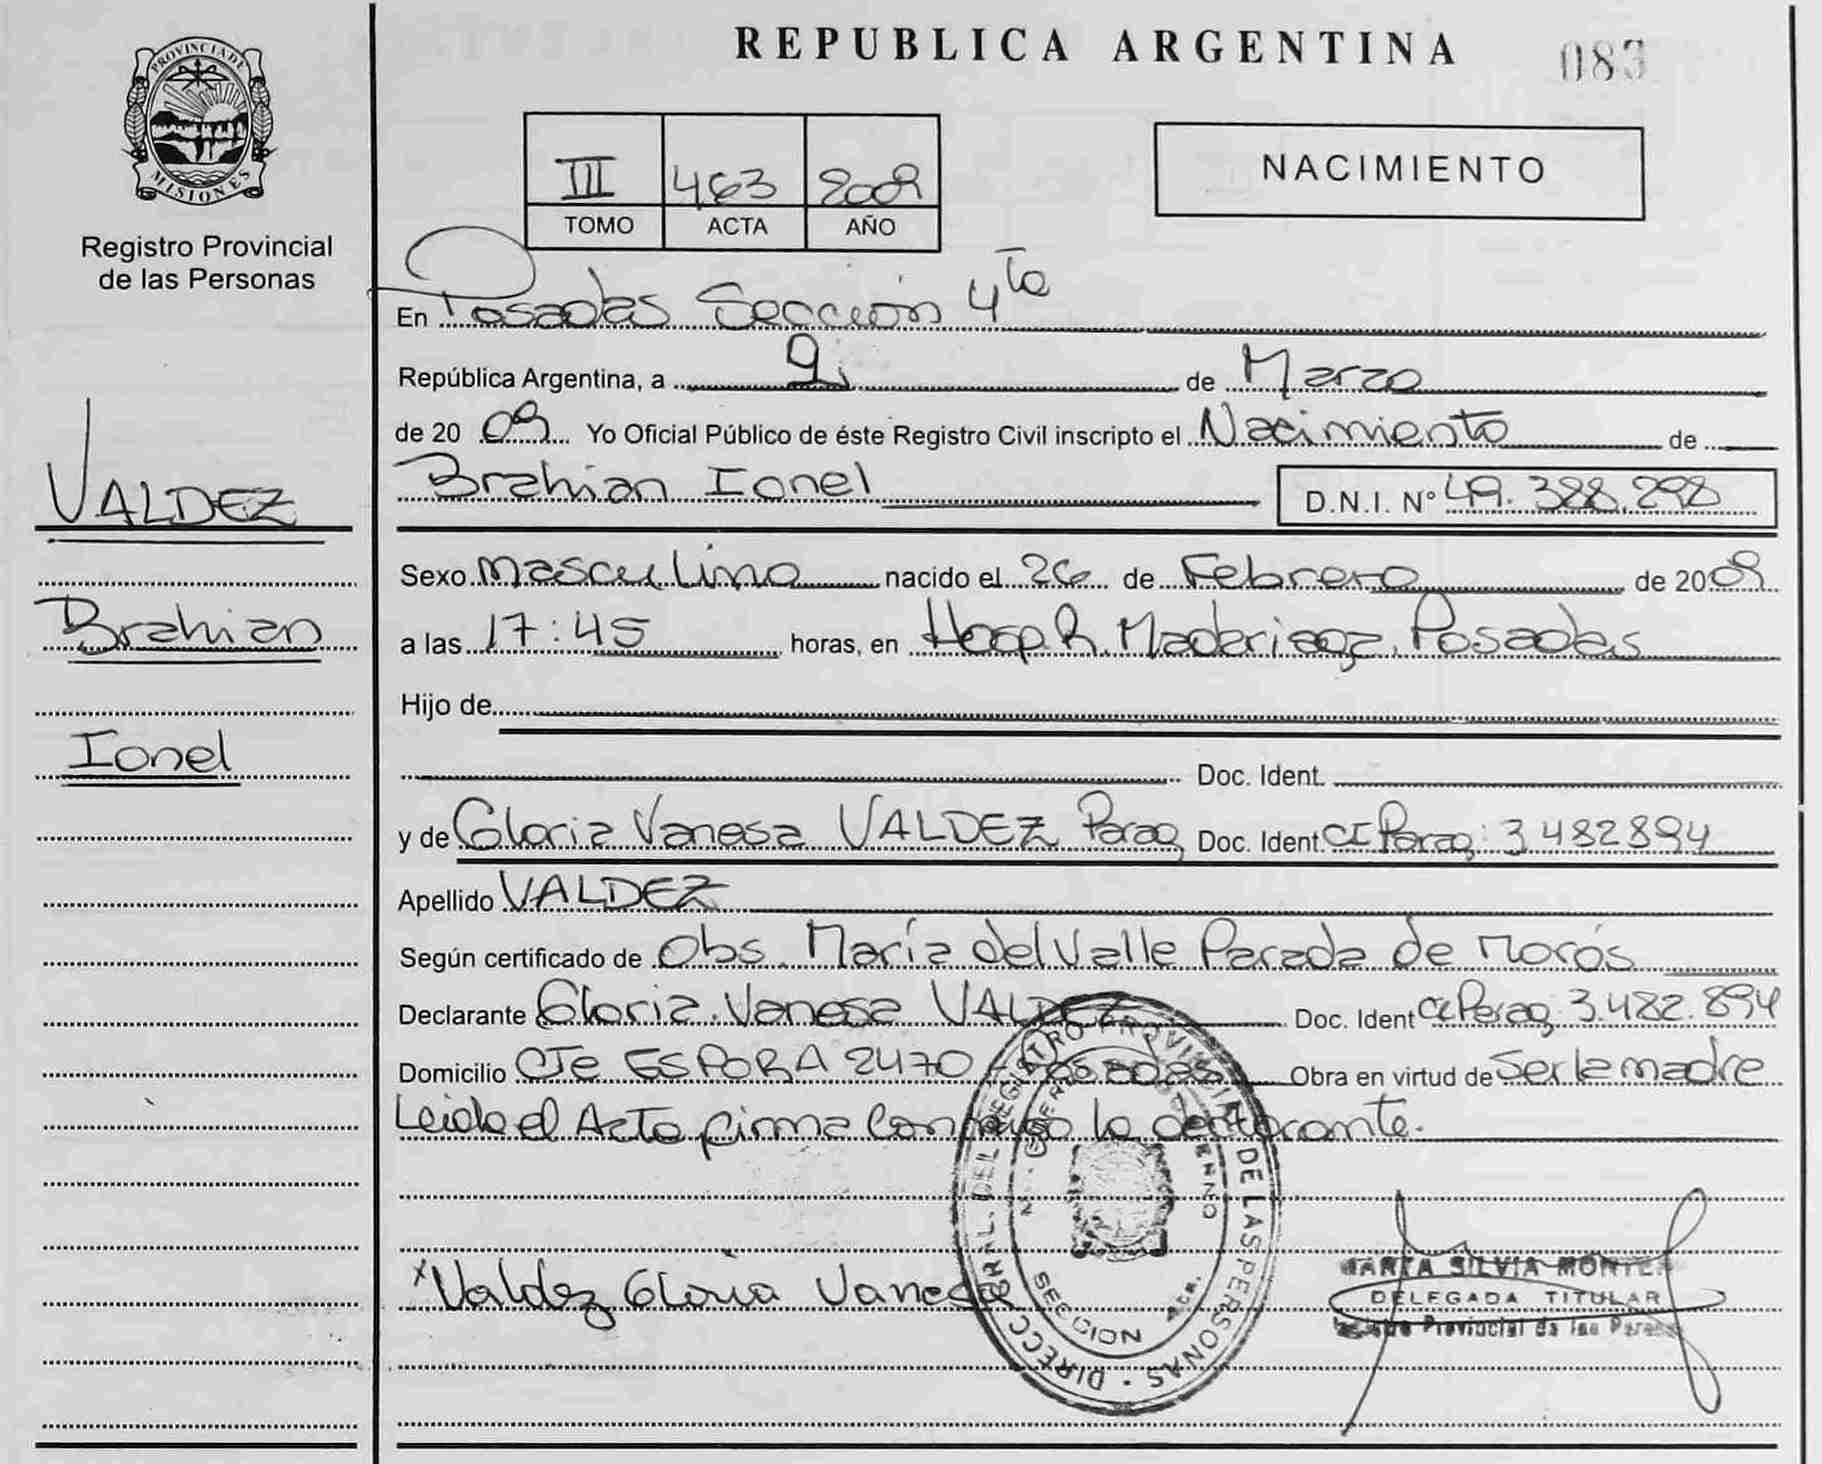 REPUBLICA ARGENTINA
083
PROVINCIA DE
MISIONES
Registro Provincial
de las Personas
III 463 2009
TOMO ACTA AÑO
NACIMIENTO
En Posadas Sección 4ta
República Argentina, a 9 de Marzo
de 2009 Yo Oficial Público de éste Registro Civil inscripto el Nacimiento de
Brahian Ionel D.N.I. Nº 49.388.298
VALDEZ
Brahian
Ionel
Sexo masculino nacido el 26 de Febrero de 2009
a las 17:45 horas, en Hosp. R. Madariaga. Posadas
Hijo de
Doc. Ident.
y de Gloria Vanesa VALDEZ Parag Doc. Ident. CI Parag: 3.482894
Apellido VALDEZ
Según certificado de Obs. María del Valle Parada de Morós
Declarante Gloria Vanesa VALDEZ Doc. Ident CI Parag: 3.482.894
Domicilio Cte ESPORA 2470 - Posadas Obra en virtud de Ser la madre
Leida el Acta firma conmigo la declarante.
x Valdez Gloria Vanesa
DIRECC. GRAL. DEL REGISTRO PROVINCIAL DE LAS PERSONAS
SECCION 4ta.
MARTA SILVIA
DELEGADA TITULAR
Registro Provincial de las Personas